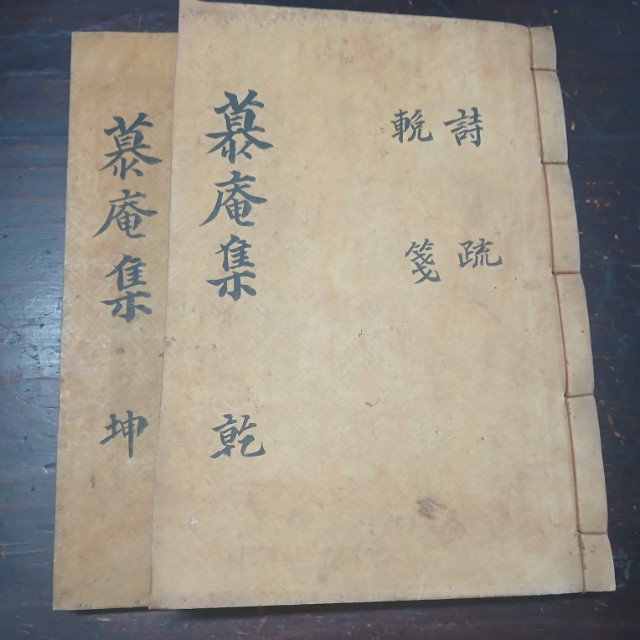 慕庵集 乾
詩 疏
輓 箋
慕庵集 坤